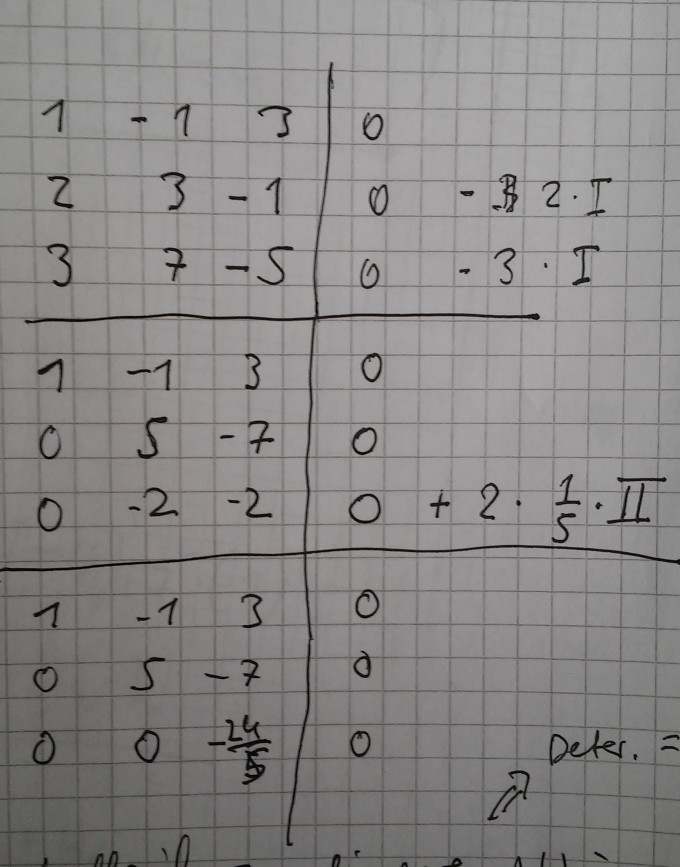 1 -1 3 | 0
2 3 -1 | 0 - 2 · I
3 7 -5 | 0 - 3 · I
1 -1 3 | 0
0 5 -7 | 0
0 -2 -2 | 0 + 2 · 1/5 · II
1 -1 3 | 0
0 5 -7 | 0
0 0 -24/5 | 0 Deter. =